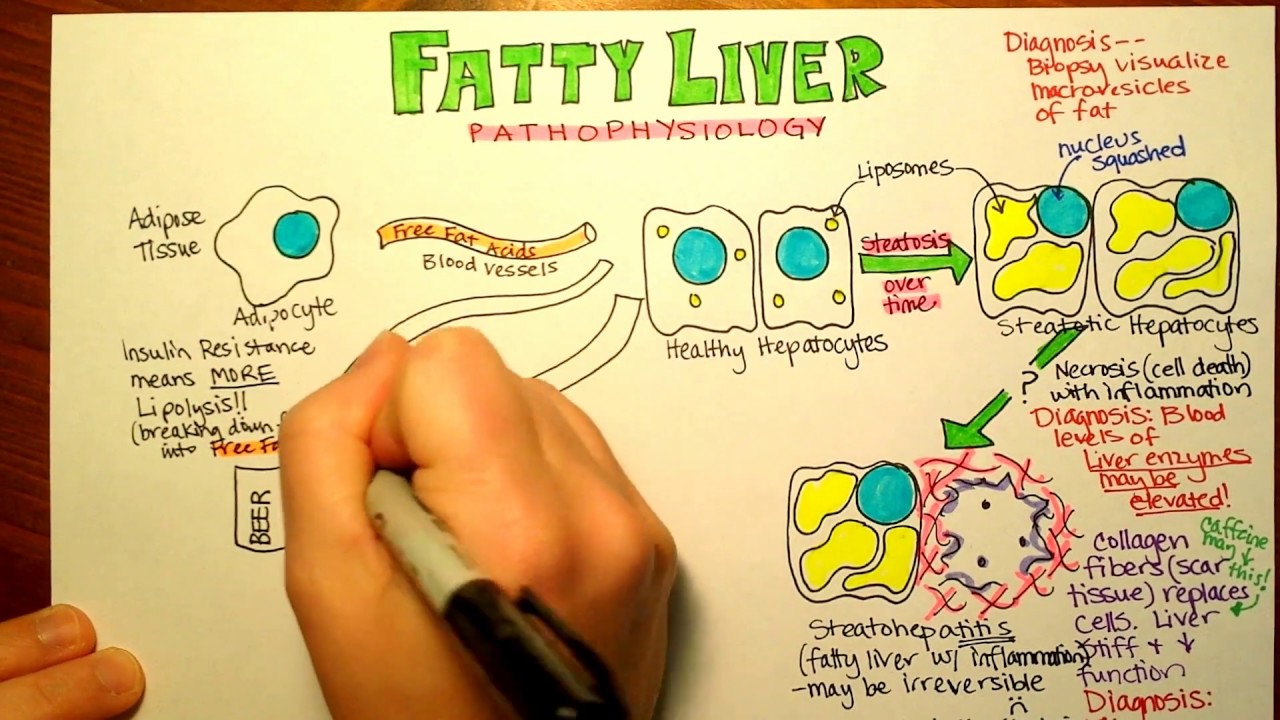 FATTY LIVER
PATHOPHYSIOLOGY
Diagnosis--
Biopsy visualize
macrovesicles
of fat
nucleus
squashed
Liposomes
Adipose
Tissue
Adipocyte
Free Fat Acids
Blood vessels
Healthy Hepatocytes
Steatosis
over
time
Steatotic Hepatocytes
Insulin Resistance
means MORE
Lipolysis!!
(breaking down
into Free
BEER
?
Necrosis (cell death)
with inflammation
Diagnosis: Blood
levels of
Liver enzymes
may be
elevated!
collagen
fibers (scar
tissue) replaces
cells. Liver
stiff + ↓
function
caffeine
may ↓
this!
Steatohepatitis
(fatty liver w/ inflammation)
-may be irreversible
Diagnosis: